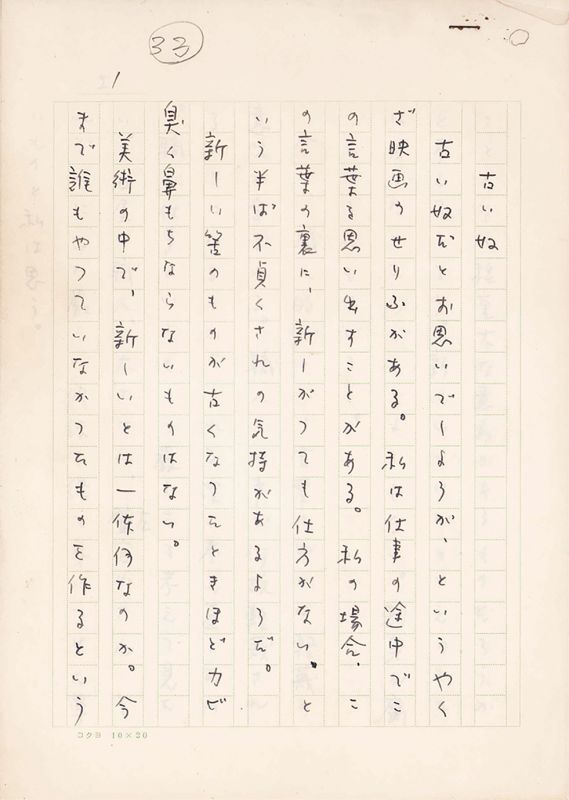 33
1
古い奴
古い奴だとお思いでしょうが、というやく
ざ映画のせりふがある。私は仕事の途中でこ
の言葉を思い出すことがある。私の場合、こ
の言葉の裏に、新しがつても仕方がない。と
いう半ば不貞くされの気持があるようだ。
新しい筈のものが古くなつたときほどカビ
臭く鼻もちならないものはない。
美術の中で、新しいとは一体何なのか。今
まで誰もやつていなかつたものを作るという
コクヨ 10×20